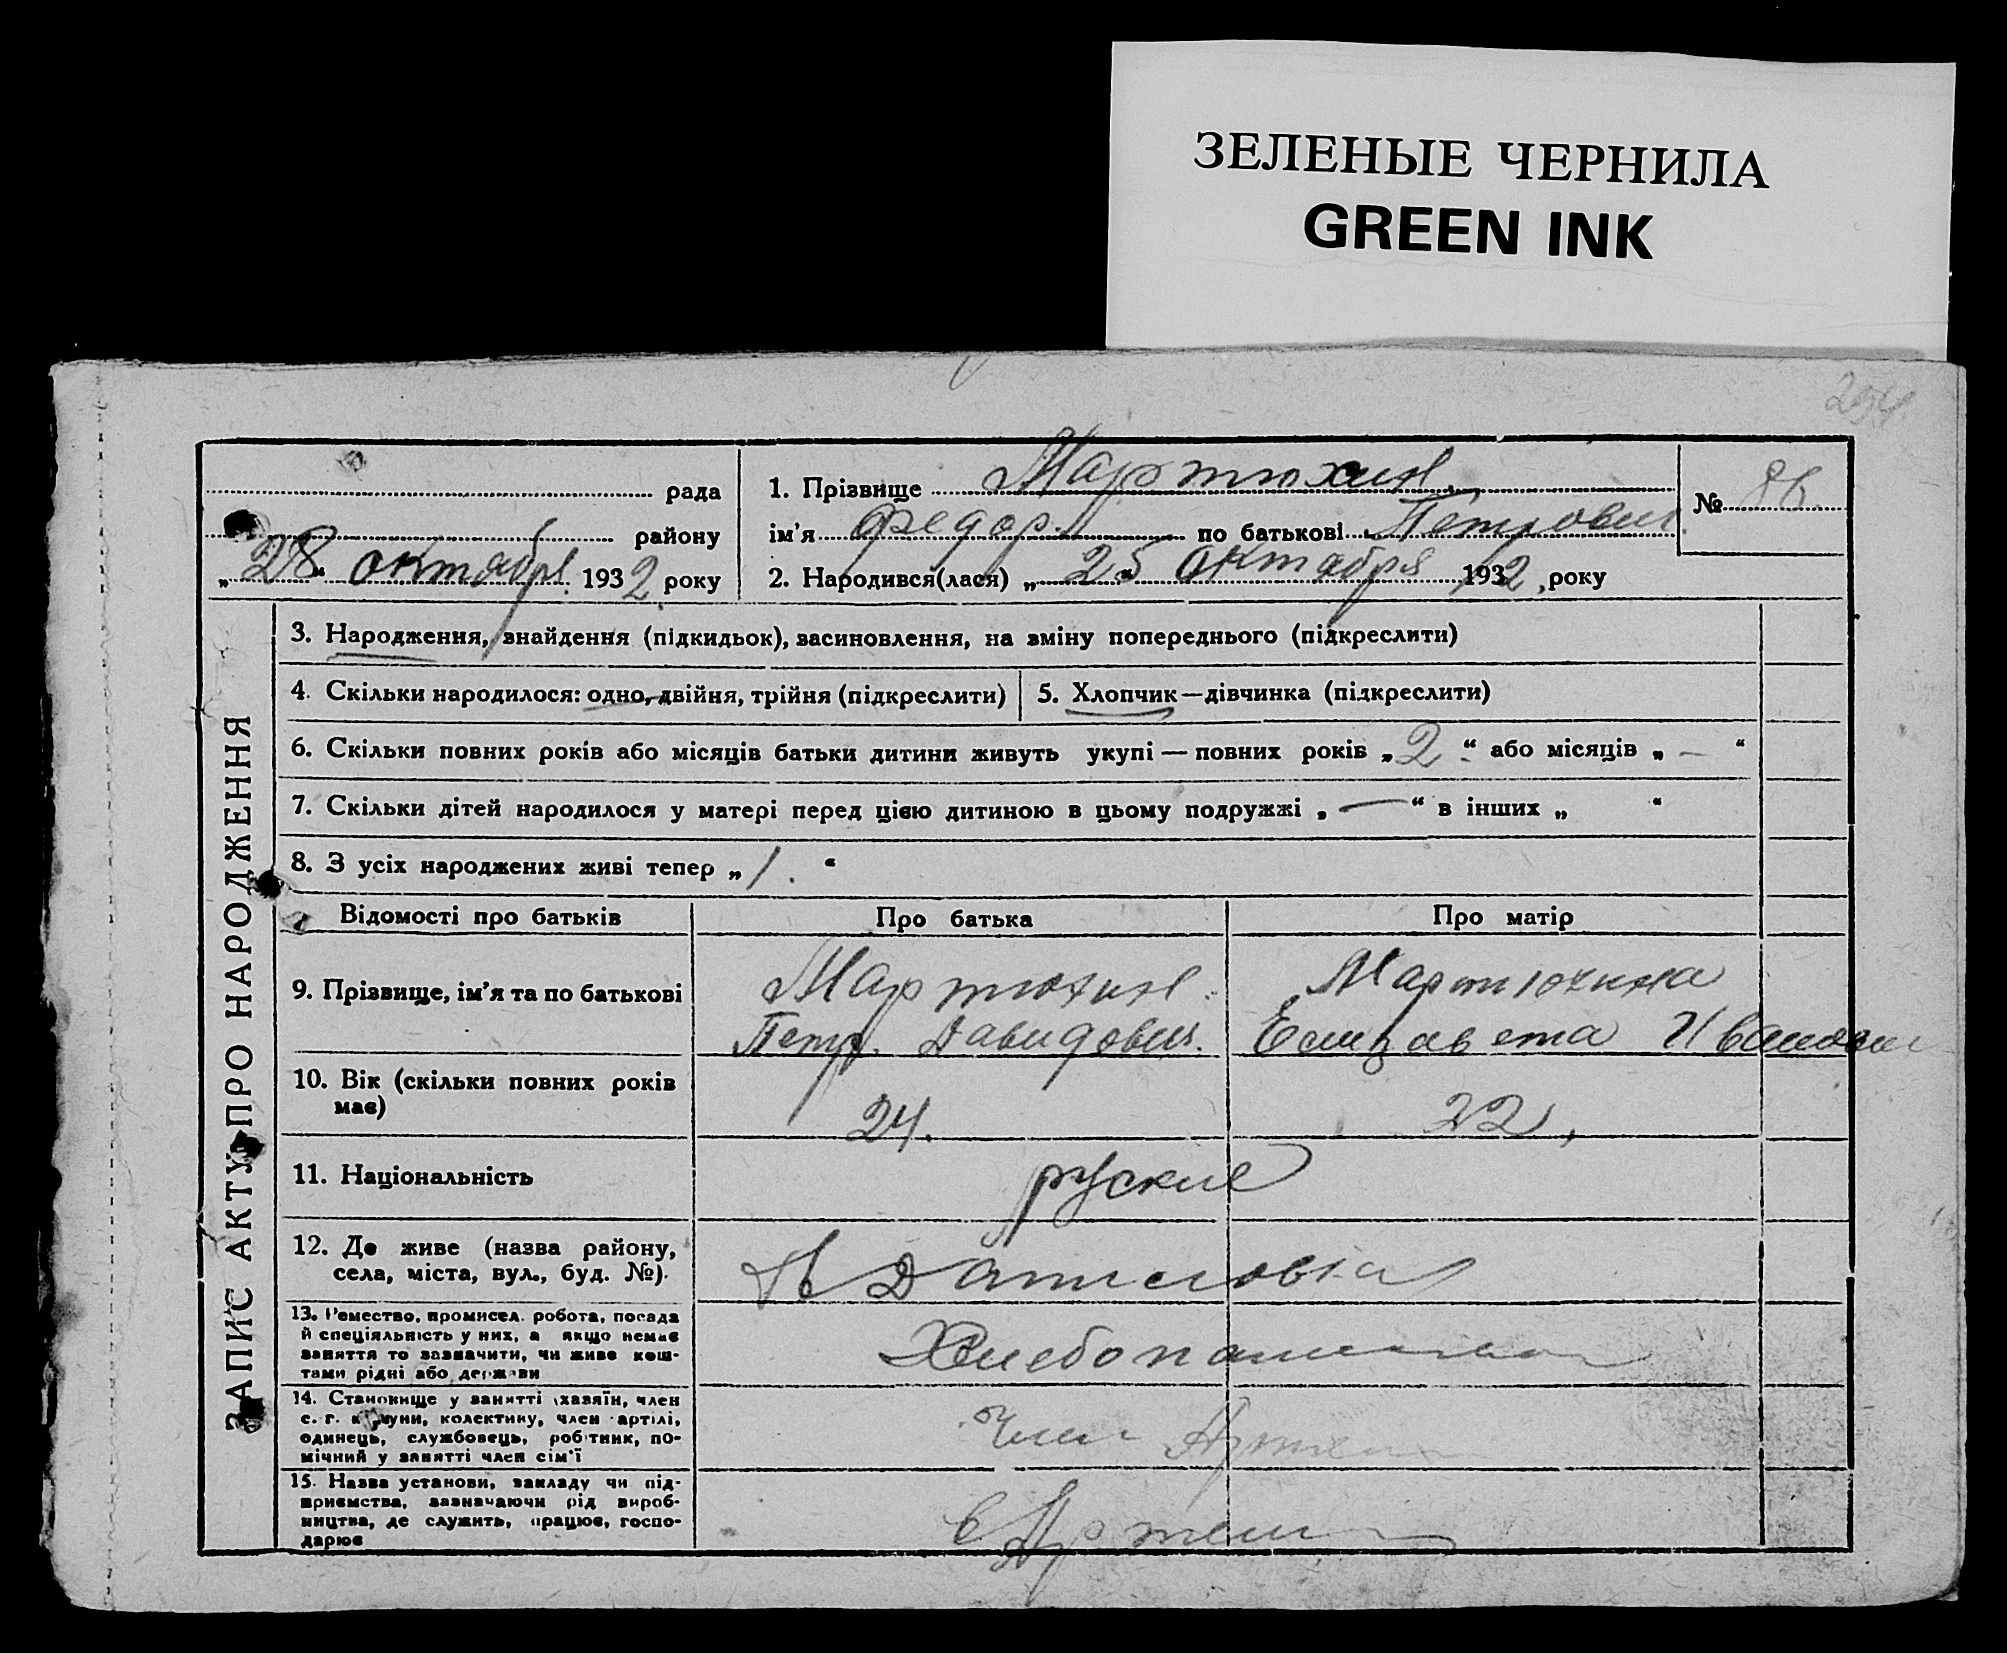 ЗЕЛЕНЫЕ ЧЕРНИЛА
GREEN INK
рада
району
„28“ октября 1932 року
1. Прізвище Мартюхин
ім'я Федор. по батькові Петрович
2. Народився(лася) „25“ октября 1932, року
№ 86.
ЗАПИС АКТУ ПРО НАРОДЖЕННЯ
3. Народження, знайдення (підкидьок), засиновлення, на зміну попереднього (підкреслити)
4. Скільки народилося: одно, двійня, трійня (підкреслити)
5. Хлопчик—дівчинка (підкреслити)
6. Скільки повних років або місяців батьки дитини живуть укупі — повних років „2“ або місяців „—“
7. Скільки дітей народилося у матері перед цією дитиною в цьому подружжі „—“ в інших „ “
8. З усіх народжених живі тепер „1.“
Відомості про батьків
Про батька
Про матір
9. Прізвище, ім'я та по батькові
Мартюхин
Петр. Давидович.
Мартюхина
Елизавета Ивановна
10. Вік (скільки повних років
має)
24.
22,
11. Національність
руские
12. Де живе (назва району,
села, міста, вул., буд. №).
13. Ремество, промисел. робота, посада
й спеціяльність у них, а якщо немає
заняття то зазначити, чи живе кош-
тами рідні або держави
Хлебопашество
14. Становище у занятті (хазяїн, член
с. г. комуни, колективу, член артілі,
одинець, службовець, робітник, по-
мічний у занятті член сім'ї
Член Артели
15. Назва установи, закладу чи під-
приємства, зазначаючи рід вироб-
ництва, де служить, працює, госпо-
дарює
в Артели